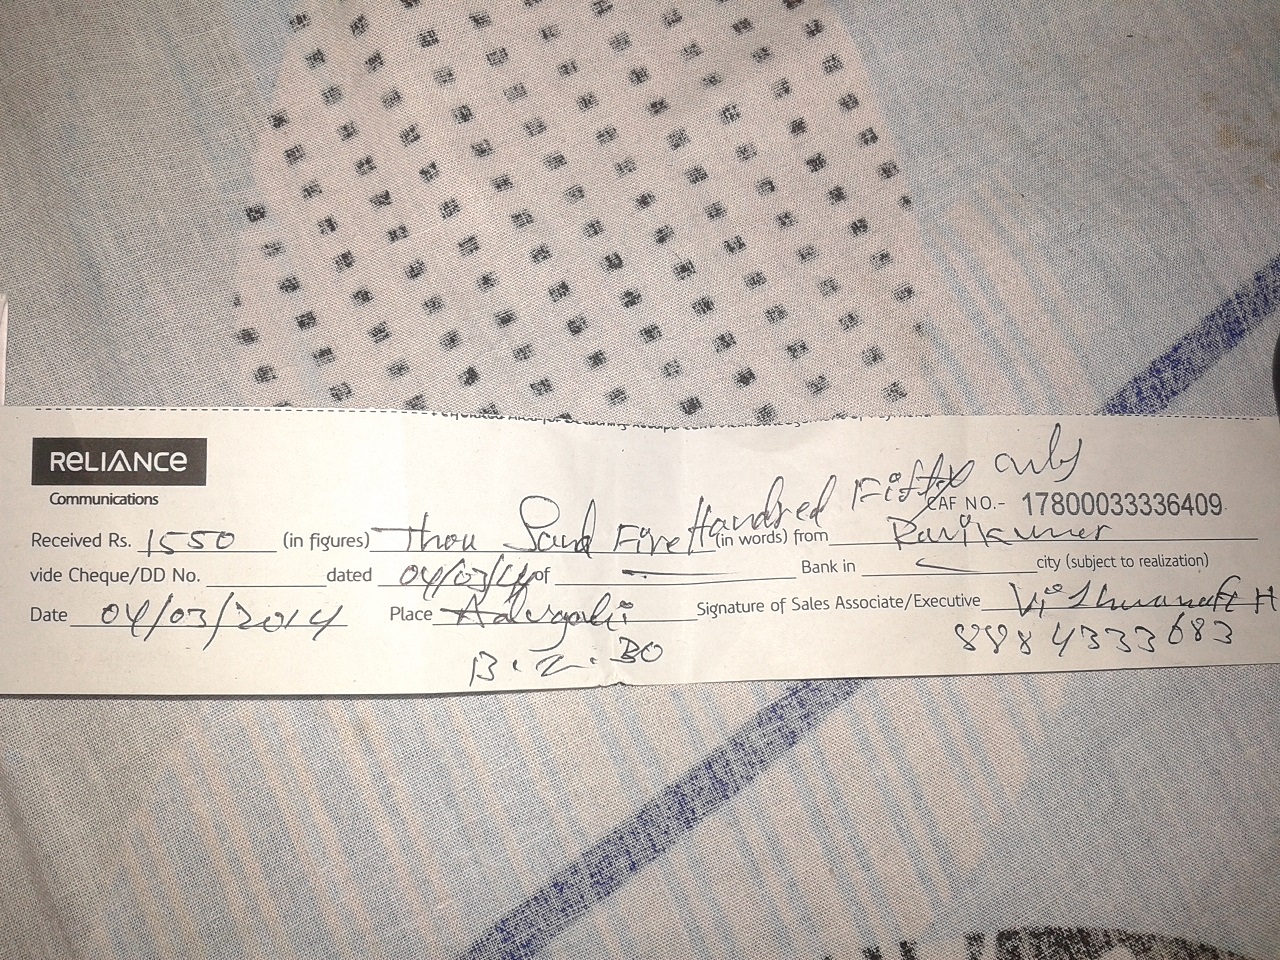 RELIANCE
Communications
Fifty only
CAF NO.- 17800033336409
Received Rs. 1550 (in figures) Thou Sand Five Handred (in words) from Ravikumer
vide Cheque/DD No. dated 04/03/14 of — Bank in — city (subject to realization)
Date 04/03/2014 Place Signature of Sales Associate/Executive Vishwanath H
8884333683